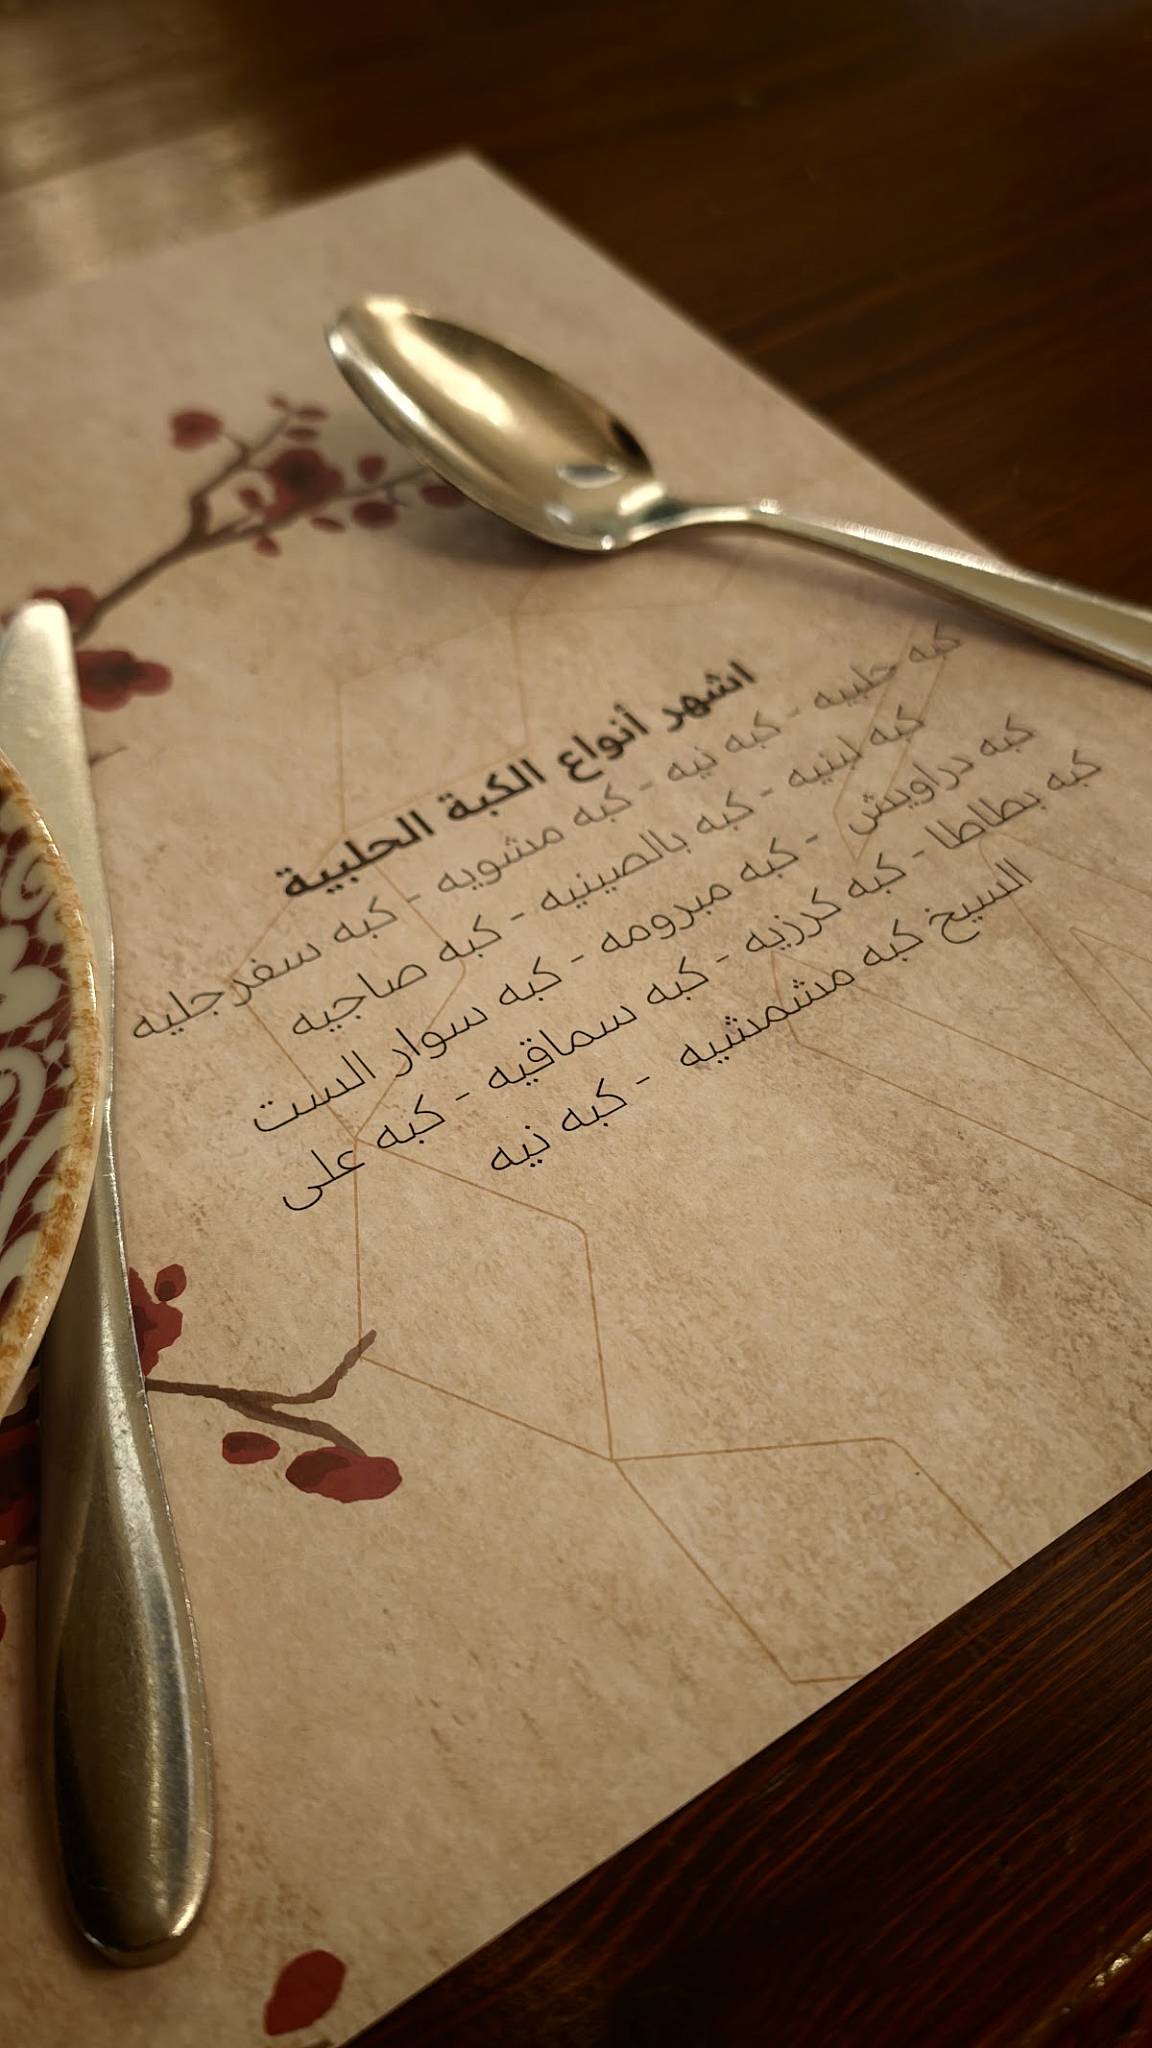 اشهر أنواع الكبة الحلبية
كبه حلبيه - كبه نيه - كبه مشويه - كبه سفرجليه
كبه لبنيه - كبه بالصينيه - كبه صاجيه
كبه دراويش - كبه مبرومه - كبه سوار الست
كبه بطاطا - كبه كرزيه - كبه سماقيه - كبه على
السيخ كبه مشمشيه - كبه نيه